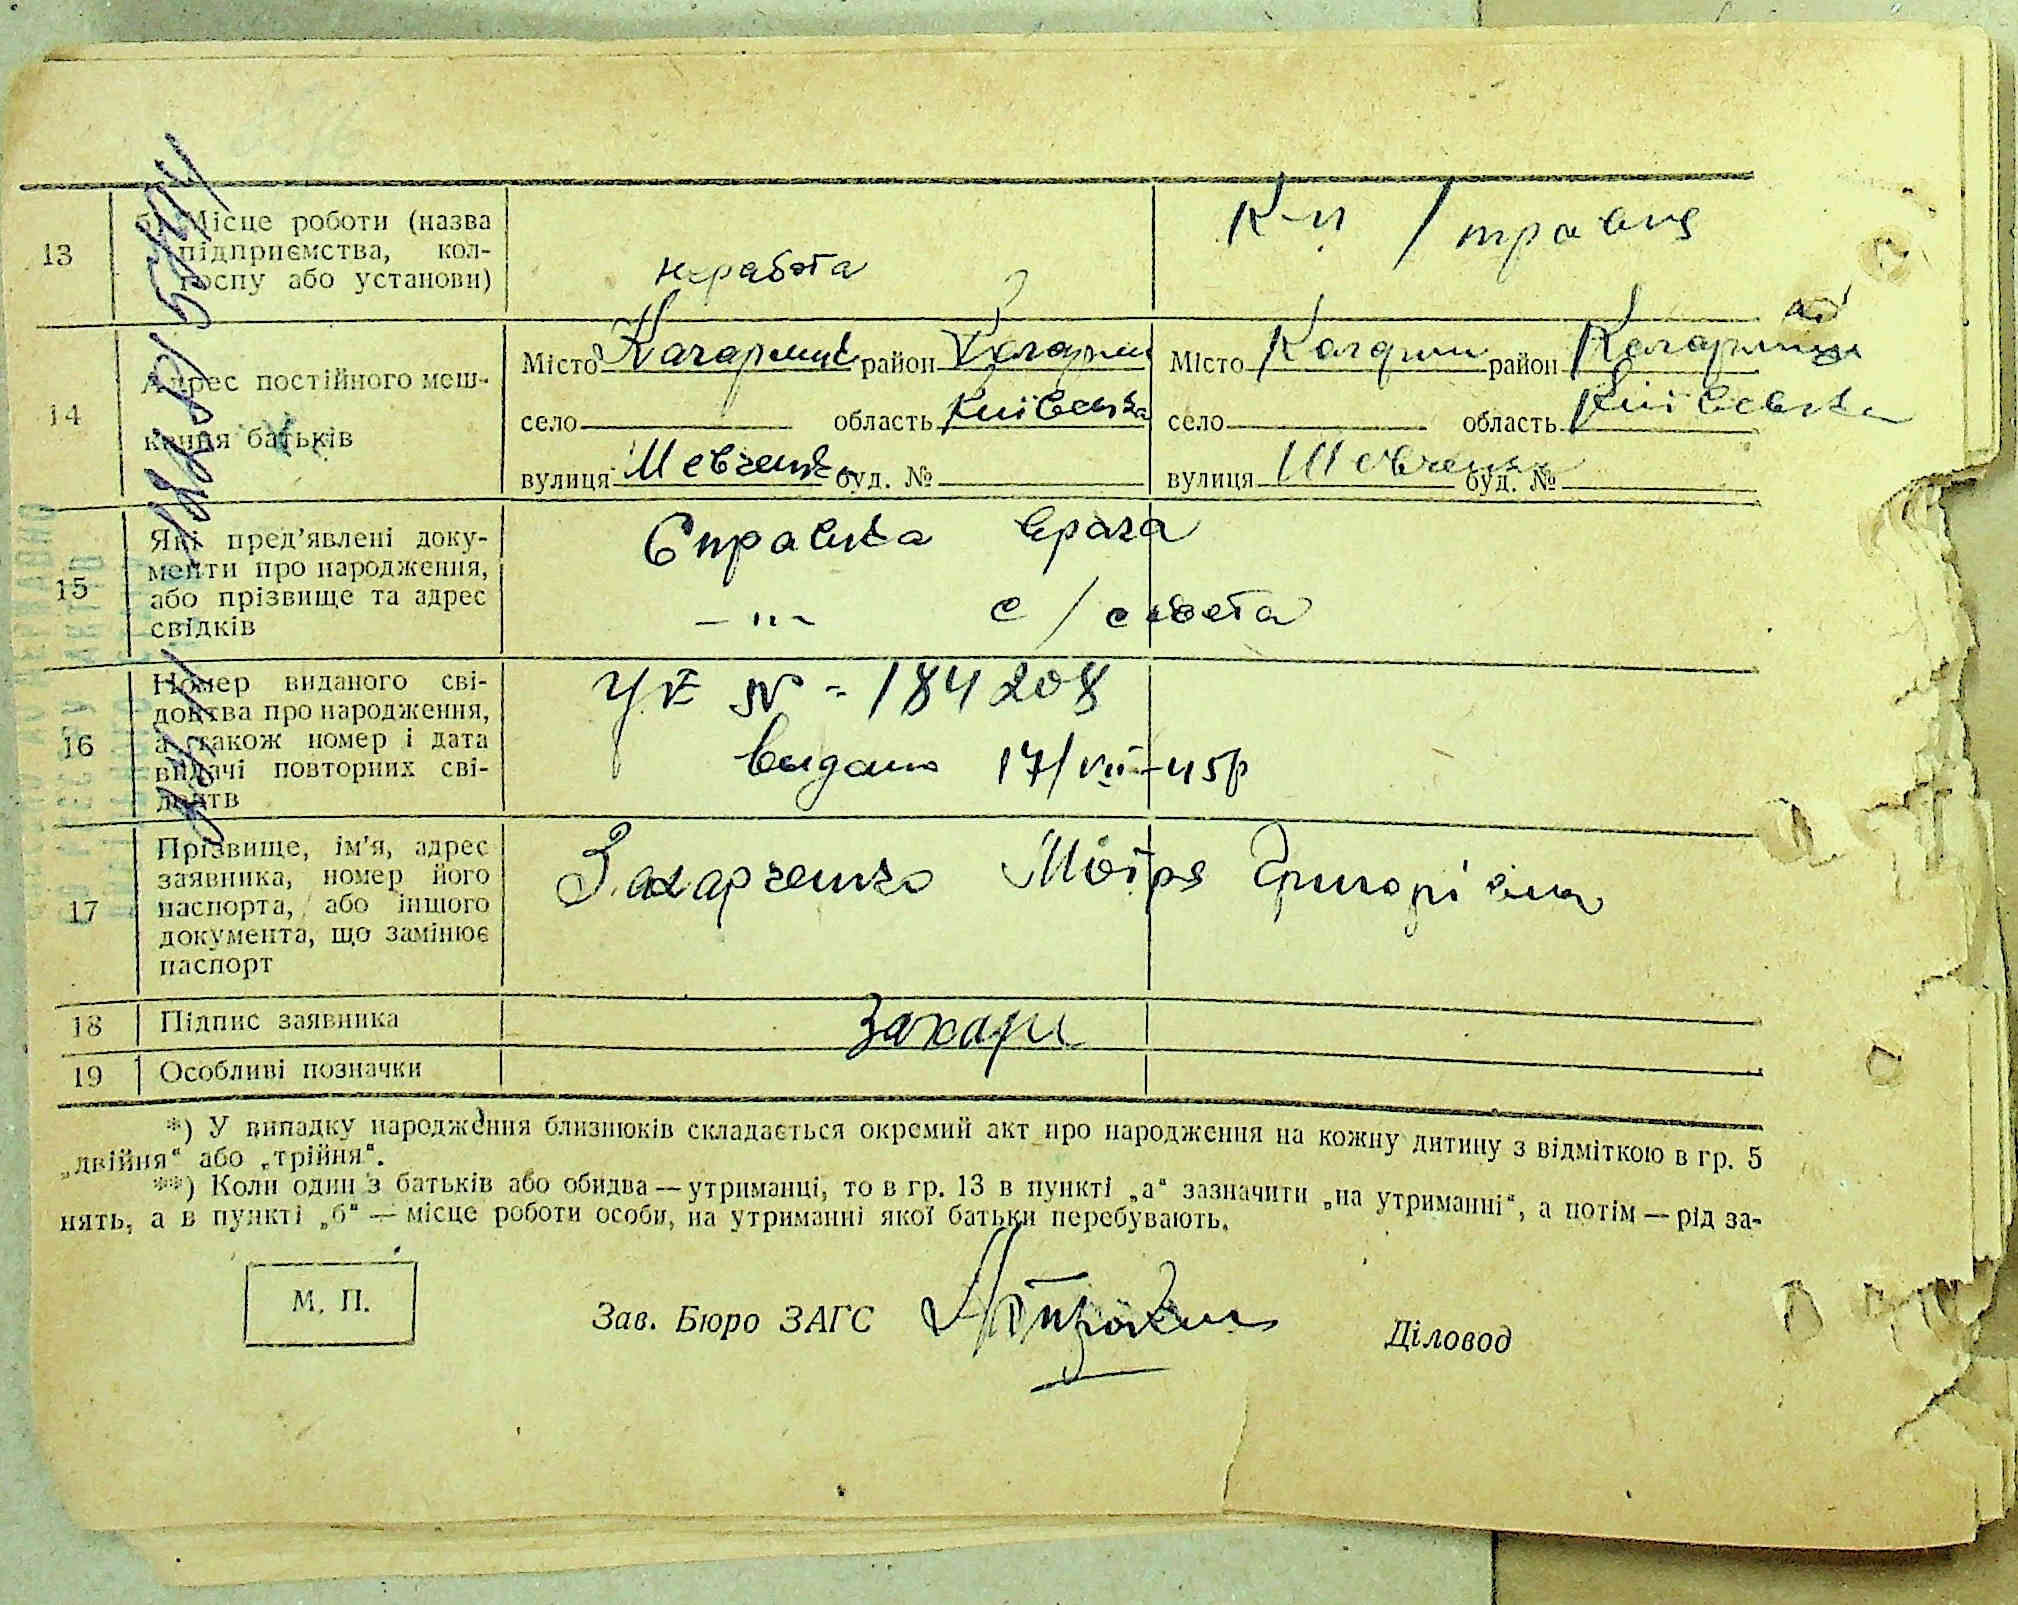 13 б) Місце роботи (назва
підприємства, кол-
госпу або установи)
неработа
К-п / травня
14 Адрес постійного меш-
кання батьків
Місто Кагарлик район Кагарли
село область Київська
вулиця Шевченк буд. №
Місто Кагарли район Кагарли
село область Київська
вулиця Шевченк буд. №
15 Які пред'явлені доку-
менти про народження,
або прізвище та адрес
свідків
Справка врача
— " — с/совета
16 Номер виданого сві-
доцтва про народження,
а також номер і дата
видачі повторних сві-
доцтв
УЕ № - 184208
видано 17/VII-45р
17 Прізвище, ім'я, адрес
заявника, номер його
паспорта, або іншого
документа, що замінює
паспорт
Захарченко Мотря Григорівна
18 Підпис заявника
Захарч
19 Особливі позначки
*) У випадку народження близнюків складається окремий акт про народження на кожну дитину з відміткою в гр. 5
„двійня“ або „трійня“.
**) Коли один з батьків або обидва — утриманці, то в гр. 13 в пункті „а“ зазначити „на утриманні“, а потім — рід за-
нять, а в пункті „б“ — місце роботи особи, на утриманні якої батьки перебувають.
М. П.
Зав. Бюро ЗАГС
Діловод